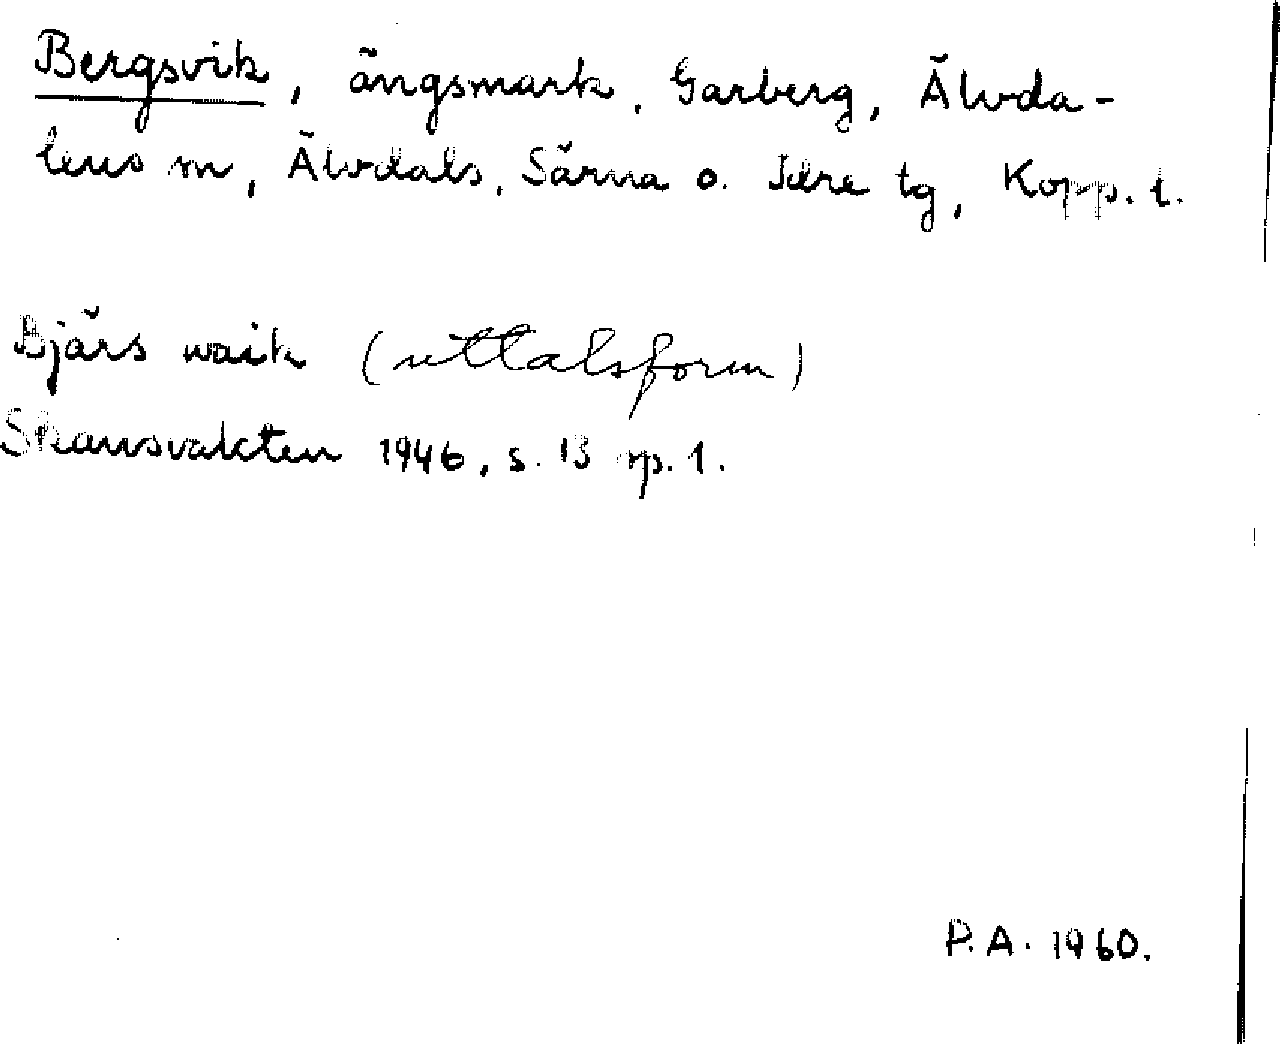 Bergsvik, ängsmark, Garberg, Älvda-
lens m, Älvdals, Särna o. Idre tg, Kopp. l.
Bjärs waik (uttalsform)
Skansvakten 1946, s. 13 sp. 1.
P.A. 1960.